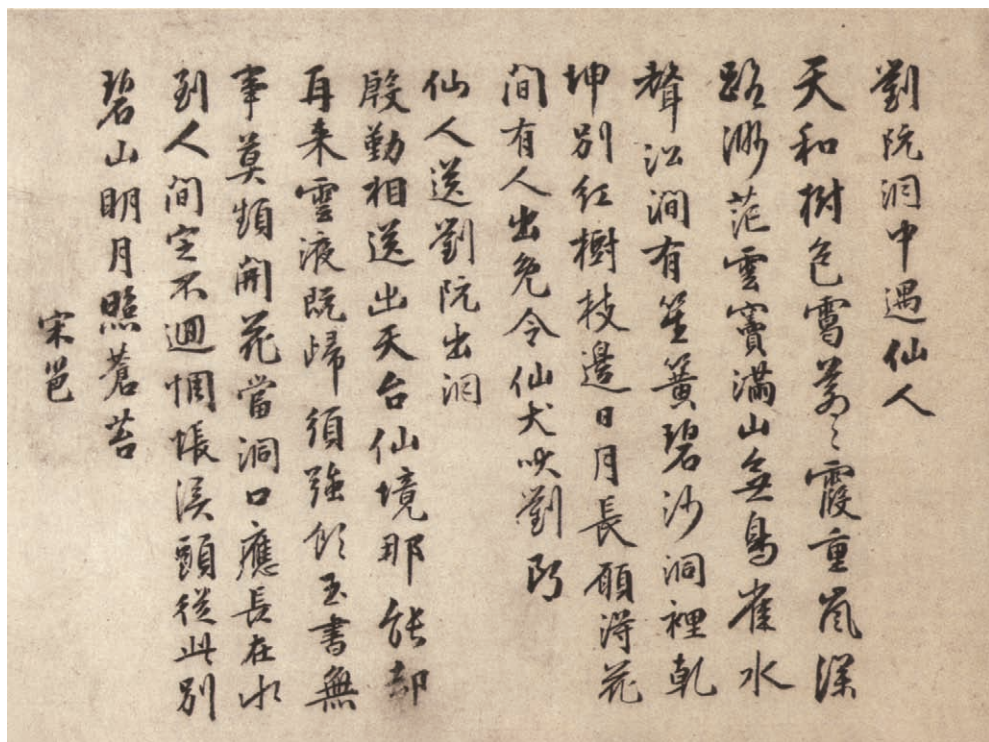 劉阮洞中遇仙人
天和樹色靄蒼〻霞重嵐深
路渺茫雲竇滿山無鳥雀水
聲沿澗有笙簧碧沙洞裡乾
坤別紅樹枝邊日月長願得花
間有人出免令仙犬吠劉郎
仙人送劉阮出洞
殷勤相送出天台仙境那能却
再来雲液既歸須強飲玉書無
事莫頻開花當洞口應長在水
到人間定不迴惆悵溪頭從此別
碧山明月照蒼苔
宋邕